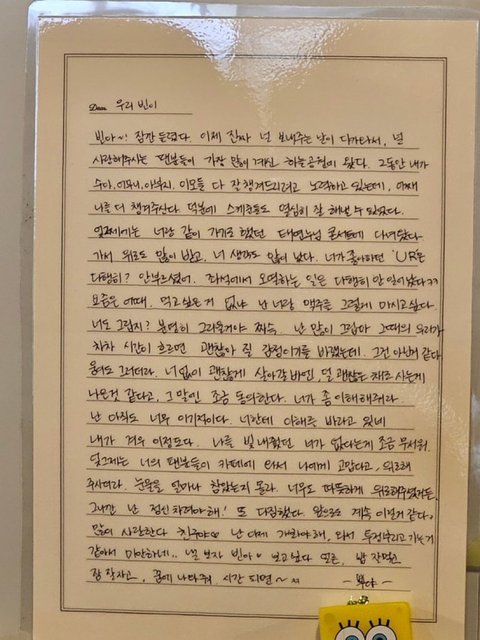 Dear. 우리 빈이
빈아~ 잠깐 들렸다. 이제 진짜 널 보내주는 날이 다가와서, 널
사랑해주시는 팬분들이 가장 많이 계신 하늘공원이 왔다. 그동안 내가
수아, 어머니, 아버지, 이모들 다 잘 챙겨드리려고 노력하고 있는데, 어째
나를 더 챙겨주신다 덕분에 스케줄들도 열심히 잘 해낼 수 있었다.
엊그제께는 너랑 같이 가기로 했던 태연누님 콘서트에 다녀왔다
가서 위로도 많이 받고, 너 생각도 많이 났다. 너가 좋아하던 'UR'은
다행히? 안부르셨어. 좌석에서 오열하는 일은 다행히 안 일어났다ㅋㅋ
요즘은 어때. 먹고싶은 거 없냐 난 너랑 맥주를 그렇게 마시고싶다.
너도 그렇지? 분명히 그리울거야 짜슥. 난 많이 그립다 그때의 우리가
차차 시간이 흐르면 괜찮아 질 감정이기를 바랬는데. 그건 아닌거 같다
뭔가 그러더라. 너 없이 괜찮게 살아갈 바엔, 덜 괜찮은 채로 사는게
나은것 같다고, 그 말엔 조금 동의한다. 너가 좀 이해해줘라
난 아직도 너무 이기적이다. 너한테 이해를 바라고 있네
내가 겨우 이정도다. 나를 빛내줬던 너가 없다는게 조금 무서워.
엊그제는 너의 팬분들이 카페에 와서 나에게 고맙다고, 위로해
주시더라. 눈물을 얼마나 참았는지 몰라. 너무도 따뜻하게 위로해주셨거든.
그니깐 난 '정신 차려야 해.' 또 다짐했다. 앞으로도 계속 이럴거 같다,
많이 사랑한다 친구야♡ 난 이제 가봐야해, 와서 투정부리고 가는거
같아서 미안하네.. 낼 보자 빈아♡ 보고싶다 얼른, 밥 잘먹고
잠 잘자고, 꿈에 나와줘, 시간 되면~ ㅆ